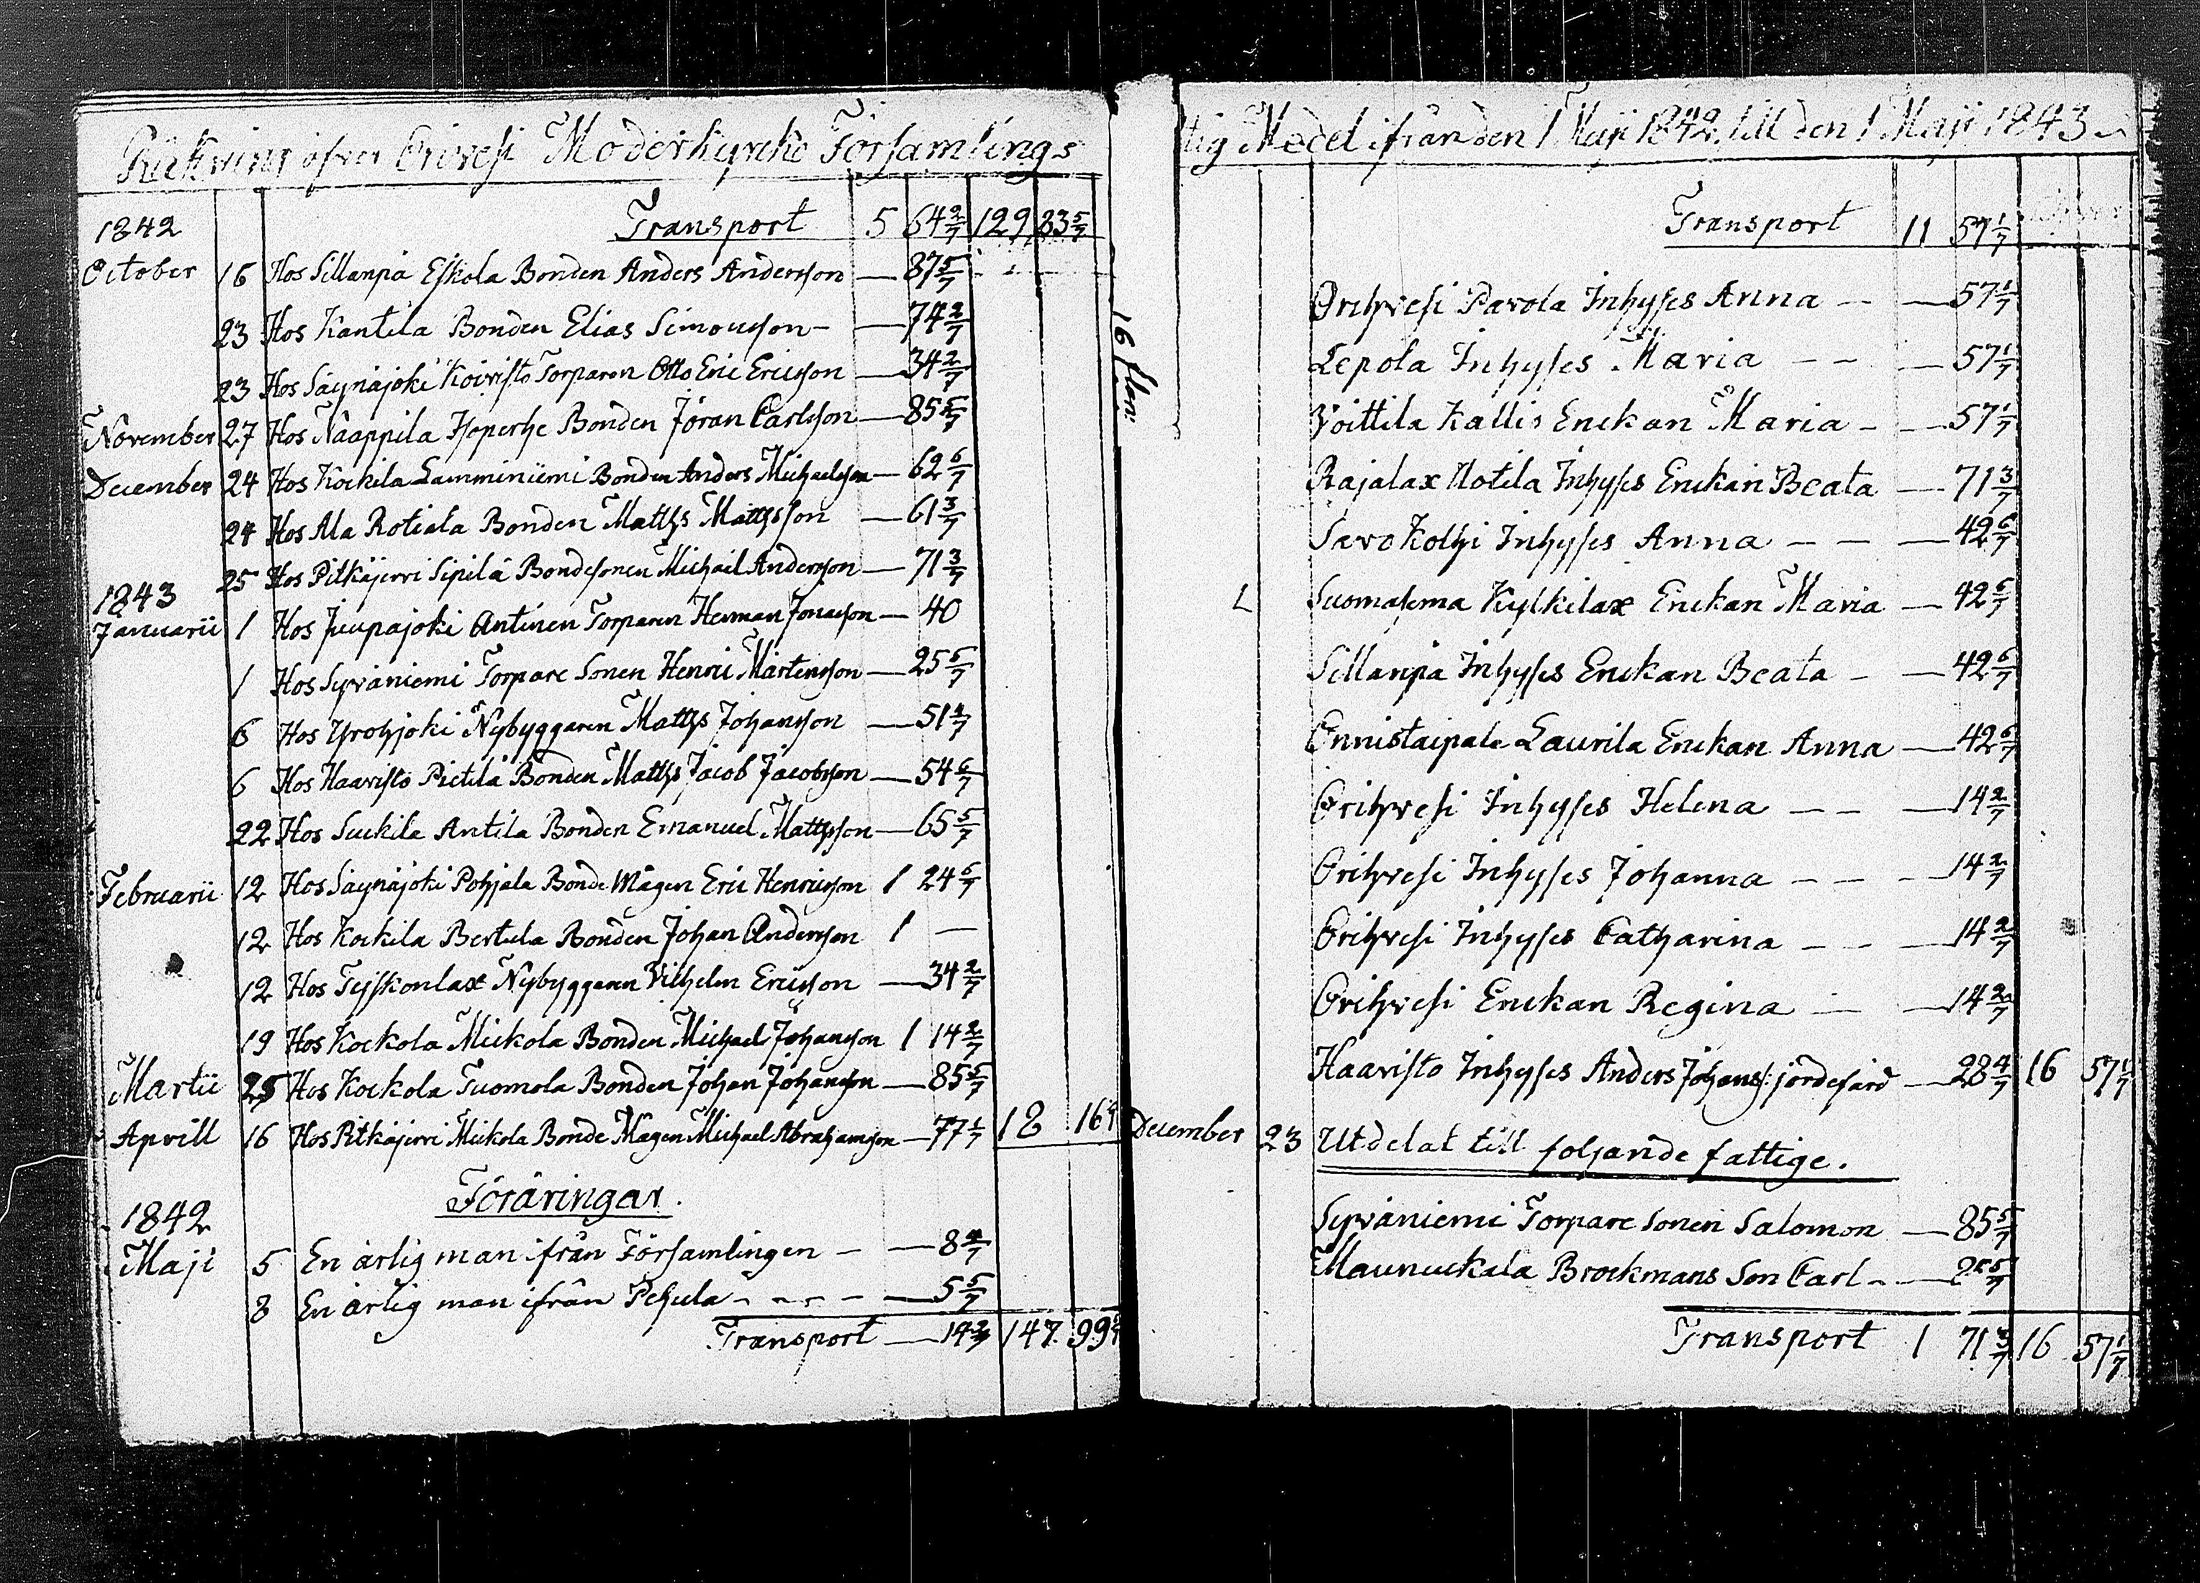 Räkning öfver Orivesi Moderkyrcko Församlings
1842 Transport 5 64 2/7 129 83 5/7
October 16 Hos Sillanpä Eskola Bonden Anders Andersson — 87 5/7
23 Hos Kantila Bonden Elias Simonsson — 74 2/7
23 Hos Säynäjoki Koivisto Torparen Otto Eric Ericsson — 34 2/7
November 27 Hos Näappila Bonden Jöran Carlsson — 85 5/7
December 24 Hos Kockila Lamminiemi Bonden Anders Michaelsson — 62 6/7
24 Hos Ala Rotiala Bonden Matths Mattsson — 61 3/7
25 Hos Pitkäjervi Sipilä Bondesonen Michael Andersson — 71 3/7
1843
Januarii 1 Hos Juupajoki Antinen Torparen Herman Jonasson — 40
1 Hos Syväniemi Torpare Sonen Henric Mårtensson — 25 5/7
6 Hos Yrohjoki Nybyggaren Matths Johansson — 51 3/7
6 Hos Haavisto Pietilä Bonden Matths Jacob Jacobsson — 54 6/7
22 Hos Suckila Antila Bonden Emanuel Mattsson — 65 5/7
Februarii 12 Hos Säynäjoki Pohjala Bonde Mågen Eric Henricsson 1 24 6/7
12 Hos Kockila Bertula Bonden Johan Andersson 1 —
12 Hos Nybyggaren Vilhelm Ericsson — 34 2/7
19 Hos Kockola Mickola Bonden Michael Johansson 1 14 2/7
Martii 25 Hos Kockola Tuomola Bonden Johan Johansson — 85 5/7
Aprill 16 Hos Pitkäjervi Mickola Bonde Mågen Michael Abrahamsson — 77 1/7 18 16
Föräringar.
1842
Maji 5 En ärlig man ifrån Församlingen — 8 4/7
8 En ärlig man ifrån Pehula — 5 5/7
Transport — 14 2/7 147 99
16 flen:
tig Medel ifrån den 1 Maji 1842, till den 1 Maji 1843
Transport 11 57 1/7
Orihvesi Pavola Inhyses Anna — 57 1/7
Lepola Inhyses Maria — 57 1/7
Voittila Kallis Enckan Maria — 57 1/7
Rajalax Uotila Inhyses Enckan Beata — 71 3/7
Savo Kolhi Inhyses Anna — 42 6/7
L Suomasema Kylkilax Enckan Maria — 42 6/7
Sillanpä Inhyses Enckan Beata — 42 6/7
Onnistaipale Laurila Enckan Anna — 42 6/7
Orihvesi Inhyses Helena — 14 2/7
Orihvesi Inhyses Johanna — 14 2/7
Orihvesi Inhyses Catharina — 14 2/7
Orihvesi Enckan Regina — 14 2/7
Haavisto Inhyses Anders Johans: jordefärd — 28 4/7 16 57 1/7
December 23 Utdelat till foljande fattige.
Syväniemi Torpare sonen Salomon — 85 5/7
Maunuckala Brockmans Son Carl — 85 5/7
Transport 1 71 3/7 16 57 1/7